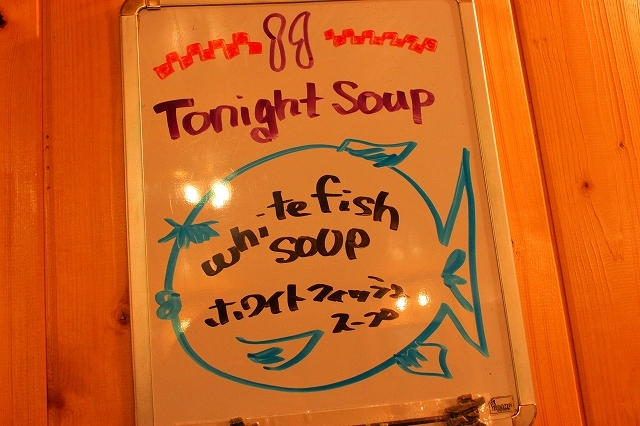 Tonight Soup
white fish
SOUP
ホワイトフィッシュ
スープ